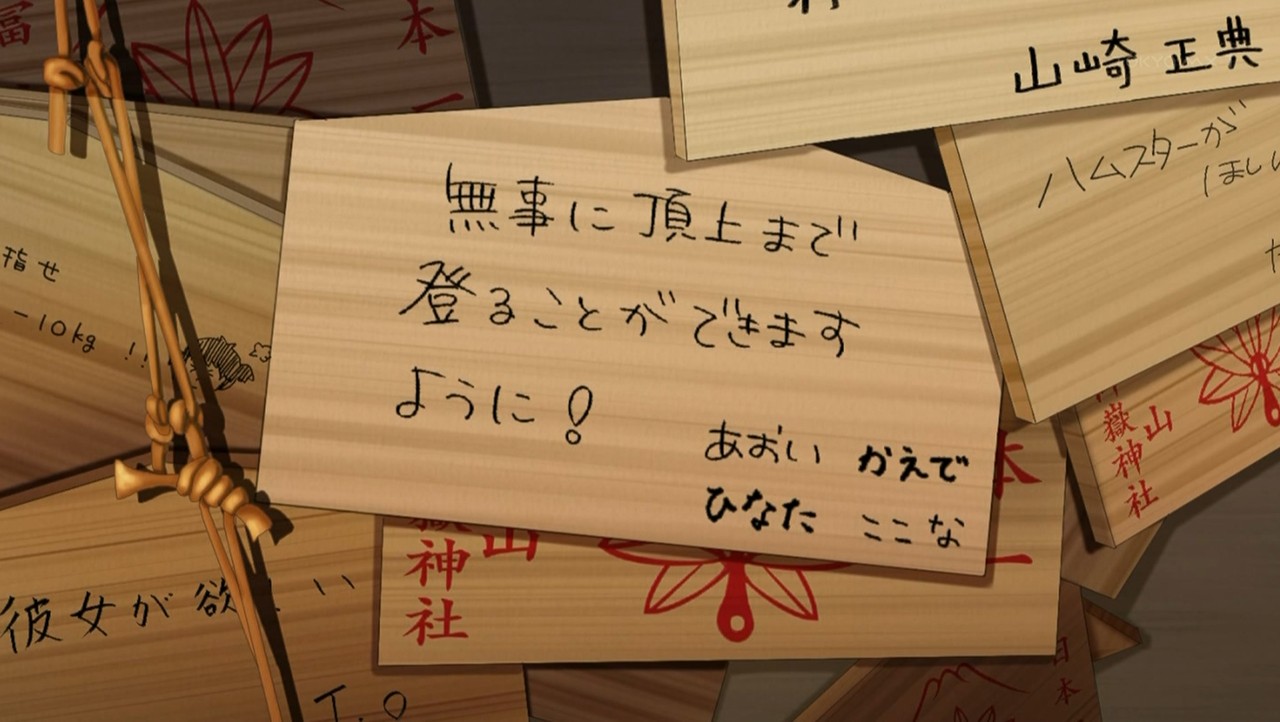 山崎 正典
ハムスターが
ほしい
無事に頂上まで
登ることができます
ように!
あおい かえで
ひなた ここな
指せ
-10kg !!
彼女が欲しい
T.O
嶽神社
山
本
一
神社
山
本
一
日本